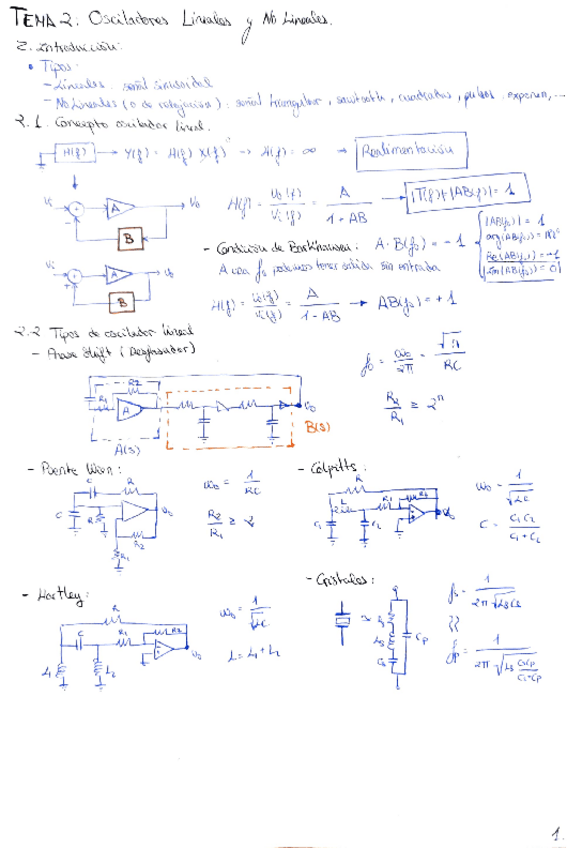 TEMA 2: Osciladores Lineales y No Lineales.
2. Introducción:
• Tipos:
- Lineales: señal sinusoidal
- No Lineales (o de relajación): señal triangular, sawtooth, cuadradas, pulsos, exponen,...
2.1. Concepto oscilador lineal.
H(f) → Y(f) = H(f) X(f) → H(f) = ∞ → Realimentación
Vi + - A Vo
B
H(f) = Vo(f) / Vi(f) = A / 1 + AB → |T(f)| = |AB(f)| = 1
- Condición de Barkhausen: A·B(f0) = -1
|AB(f0)| = 1
Re(AB(f0)) = -1
Im(AB(f0)) = 0
A una f0 podemos tener salida sin entrada
Vi + + A Vo
B
H(f) = Vo(f) / Vi(f) = A / 1 - AB → AB(f0) = +1
2.2 Tipos de oscilador lineal
- Phase Shift (Desfasador)
R2
R1
A
Vo
A(s)
B(s)
R2 / R1 ≥ 2^n
- Puente Wien:
C R
C R
Vo
R2
R1
ω0 = 1 / RC
R2 / R1 ≥ 2
- Colpitts:
R
L R1 R2
C1 C2
Vo
ω0 = 1 / √LC
C = C1 C2 / C1 + C2
- Hartley:
R
C R1 R2
L1 L2
Vo
ω0 = 1 / √LC
L = L1 + L2
- Cristales:
≈
Ls
Cs
Cp
fs = 1 / 2π √LsCs
fp = 1 / 2π √Ls CsCp / Cs+Cp
1.